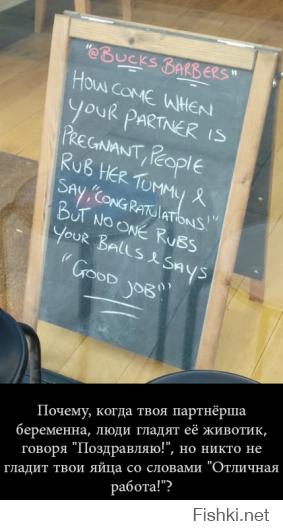 "@BUCKS BARBERS"
HOW COME WHEN
YOUR PARTNER IS
PREGNANT, PEOPLE
RUB HER TUMMY &
SAY, "CONGRATULATIONS!"
BUT NO ONE RUBS
YOUR BALLS & SAYS
"GOOD JOB!"
Почему, когда твоя партнёрша
беременна, люди гладят её животик,
говоря "Поздравляю!", но никто не
гладит твои яйца со словами "Отличная
работа!"?
Fishki.net